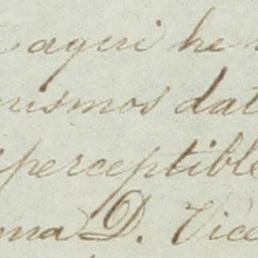 aqui he
mismos dat
perceptible
ma D. Vice